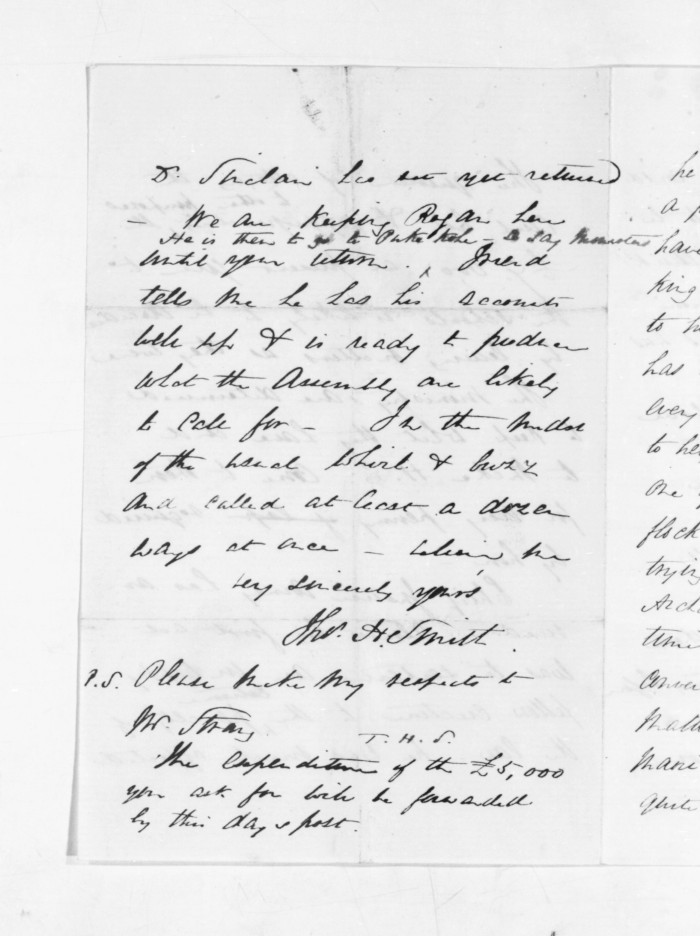 Dr. Sinclair has not yet returned
- We are keeping Rogan here
He is then to go to Puke Kohe - to say
until your return.
tells me he has his accounts
well up & is ready to produce
what the Assembly are likely
to call for - In the midst
of the usual whirl & buzz
and called at least a dozen
ways at once - believe me
very sincerely yours
Thos. H. Smith.
P.S. Please make my respects to
Mr. Strang
T. H. S.
The expenditure of the £5,000
you ask for will be forwarded
by this day's post.
he
a
have
king
to
has
every
to he
one
flock
trying
Arch
time
conver
matt
quite